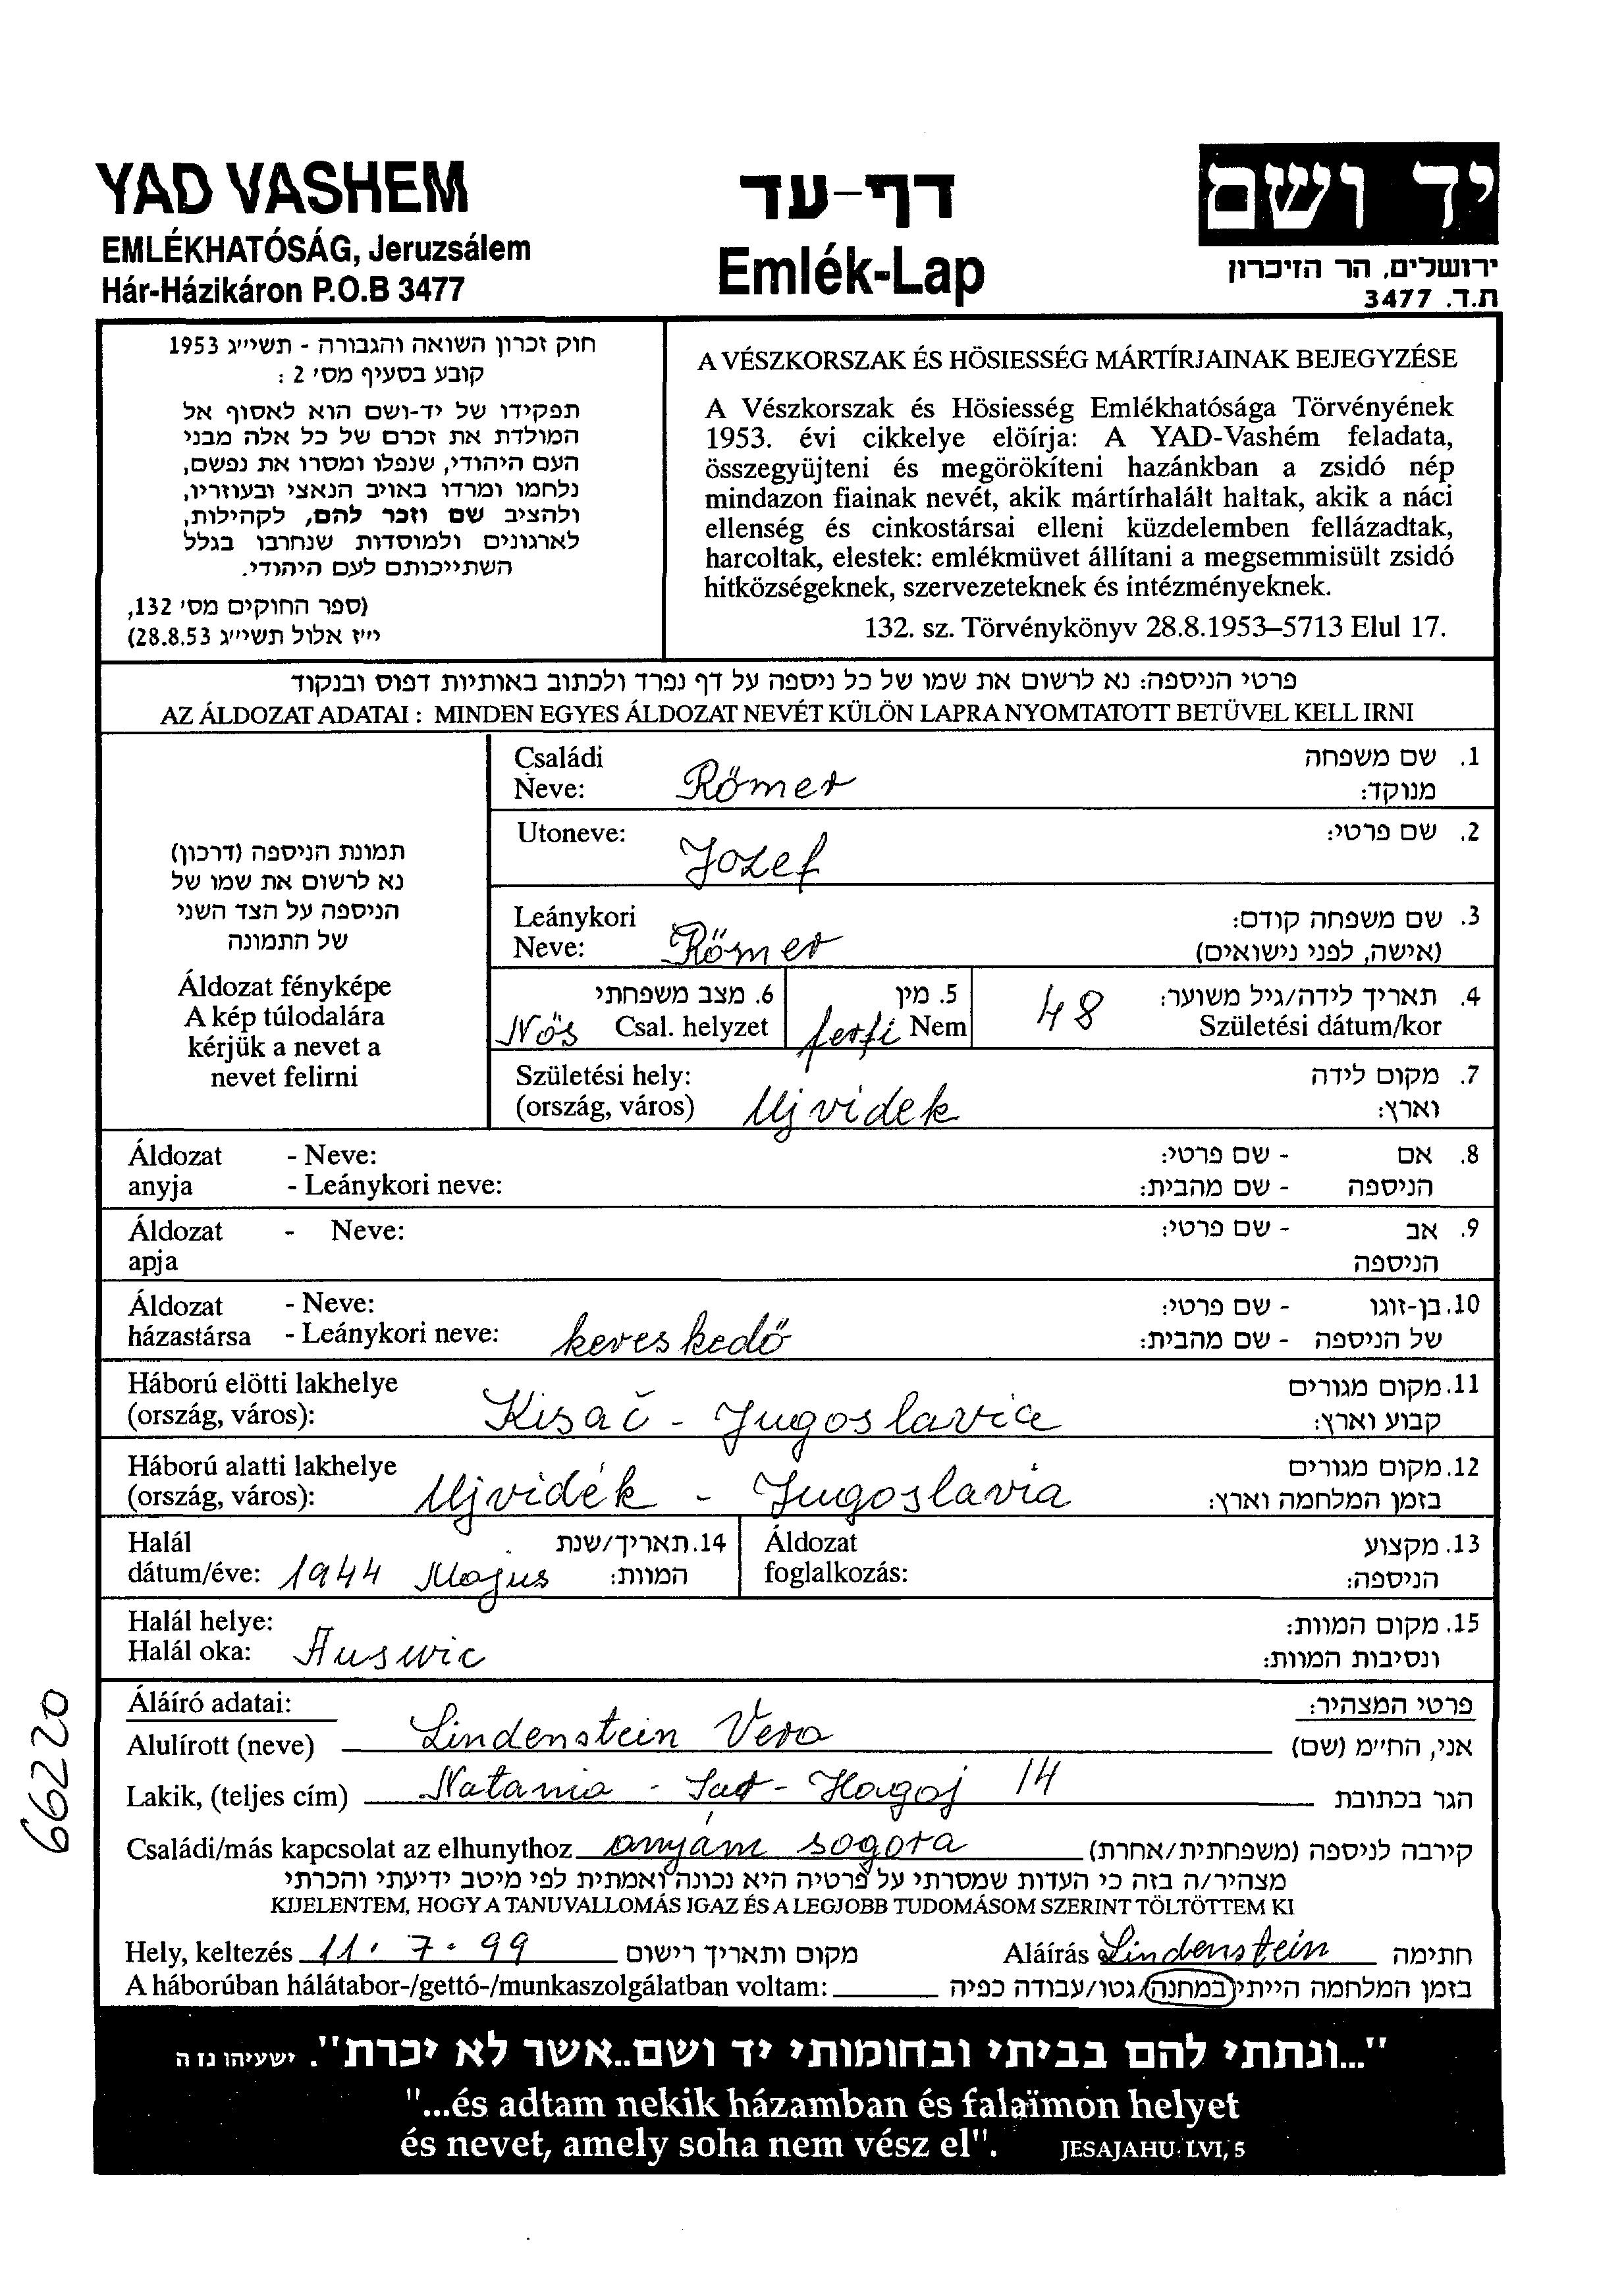 YAD VASHEM
EMLÉKHATÓSÁG, Jeruzsálem
Hár-Házikáron P.O.B 3477
דף-עד
Emlék-Lap
יד ושם
ירושלים, הר הזיכרון
ת.ד. 3477
חוק זכרון השואה והגבורה - תשי״ג 1953
קובע בסעיף מס׳ 2 :
תפקידו של יד-ושם הוא לאסוף אל
המולדת את זכרם של כל אלה מבני
העם היהודי, שנפלו ומסרו את נפשם,
נלחמו ומרדו באויב הנאצי ובעוזריו,
ולהציב שם וזכר להם, לקהילות,
לארגונים ולמוסדות שנחרבו בגלל
השתייכותם לעם היהודי.
(ספר החוקים מס׳ 132,
י״ז אלול תשי״ג 28.8.53)
A VÉSZKORSZAK ÉS HÖSIESSÉG MÁRTÍRJAINAK BEJEGYZÉSE
A Vészkorszak és Hösiesség Emlékhatósága Törvényének
1953. évi cikkelye elöírja: A YAD-Vashém feladata,
összegyüjteni és megörökíteni hazánkban a zsidó nép
mindazon fiainak nevét, akik mártírhalált haltak, akik a náci
ellenség és cinkostársai elleni küzdelemben fellázadtak,
harcoltak, elestek: emlékmüvet állítani a megsemmisült zsidó
hitközségeknek, szervezeteknek és intézményeknek.
132. sz. Törvénykönyv 28.8.1953–5713 Elul 17.
פרטי הניספה: נא לרשום את שמו של כל ניספה על דף נפרד ולכתוב באותיות דפוס ובנקוד
AZ ÁLDOZAT ADATAI : MINDEN EGYES ÁLDOZAT NEVÉT KÜLÖN LAPRA NYOMTATOTT BETÜVEL KELL IRNI
תמונת הניספה (דרכון)
נא לרשום את שמו של
הניספה על הצד השני
של התמונה
Áldozat fényképe
A kép túlodalára
kérjük a nevet a
nevet felirni
Családi Neve: Römer 1. שם משפחה מנוקד:
Utoneve: Jozef 2. שם פרטי:
Leánykori Neve: Römer 3. שם משפחה קודם: (אישה, לפני נישואים)
Nős 6. מצב משפחתי Csal. helyzet ferfi 5. מין Nem 48 4. תאריך לידה/גיל משוער: Születési dátum/kor
Születési hely: (ország, város) Ujvidek 7. מקום לידה וארץ:
Áldozat - Neve: 8. אם - שם פרטי:
anyja - Leánykori neve: הניספה - שם מהבית:
Áldozat - Neve: 9. אב - שם פרטי:
apja הניספה
Áldozat - Neve: 10. בן-זוגו - שם פרטי:
házastársa - Leánykori neve: kereskedő של הניספה - שם מהבית:
Háború elötti lakhelye 11. מקום מגורים
(ország, város): Kisač - Jugoslavia קבוע וארץ:
Háború alatti lakhelye 12. מקום מגורים
(ország, város): Ujvidék - Jugoslavia בזמן המלחמה וארץ:
Halál 14. תאריך/שנת Áldozat 13. מקצוע
dátum/éve: 1944 Majus המוות: foglalkozás: הניספה:
Halál helye: 15. מקום המוות:
Halál oka: Auswic ונסיבות המוות:
Áláíró adatai: פרטי המצהיר:
Alulírott (neve) Lindenstein Vera אני, הח״מ (שם)
Lakik, (teljes cím) Natania - Sar - Hagaj 14 הגר בכתובת
Családi/más kapcsolat az elhunythoz anyám sogora קירבה לניספה (משפחתית/אחרת)
מצהיר/ה בזה כי העדות שמסרתי על פרטיה היא נכונה ואמתית לפי מיטב ידיעתי והכרתי
KIJELENTEM, HOGY A TANUVALLOMÁS IGAZ ÉS A LEGJOBB TUDOMÁSOM SZERINT TÖLTÖTTEM KI
Hely, keltezés 11. 7. 99 מקום ותאריך רישום Aláírás Lindenstein חתימה
A háborúban hálátabor-/gettó-/munkaszolgálatban voltam: בזמן המלחמה הייתי במחנה/גטו/עבודה כפיה
"...ונתתי להם בביתי ובחומותי יד ושם..אשר לא יכרת". ישעיהו נז ה
"...és adtam nekik házamban és falaïmon helyet
és nevet, amely soha nem vész el". JESAJAHU: LVI, 5
66220